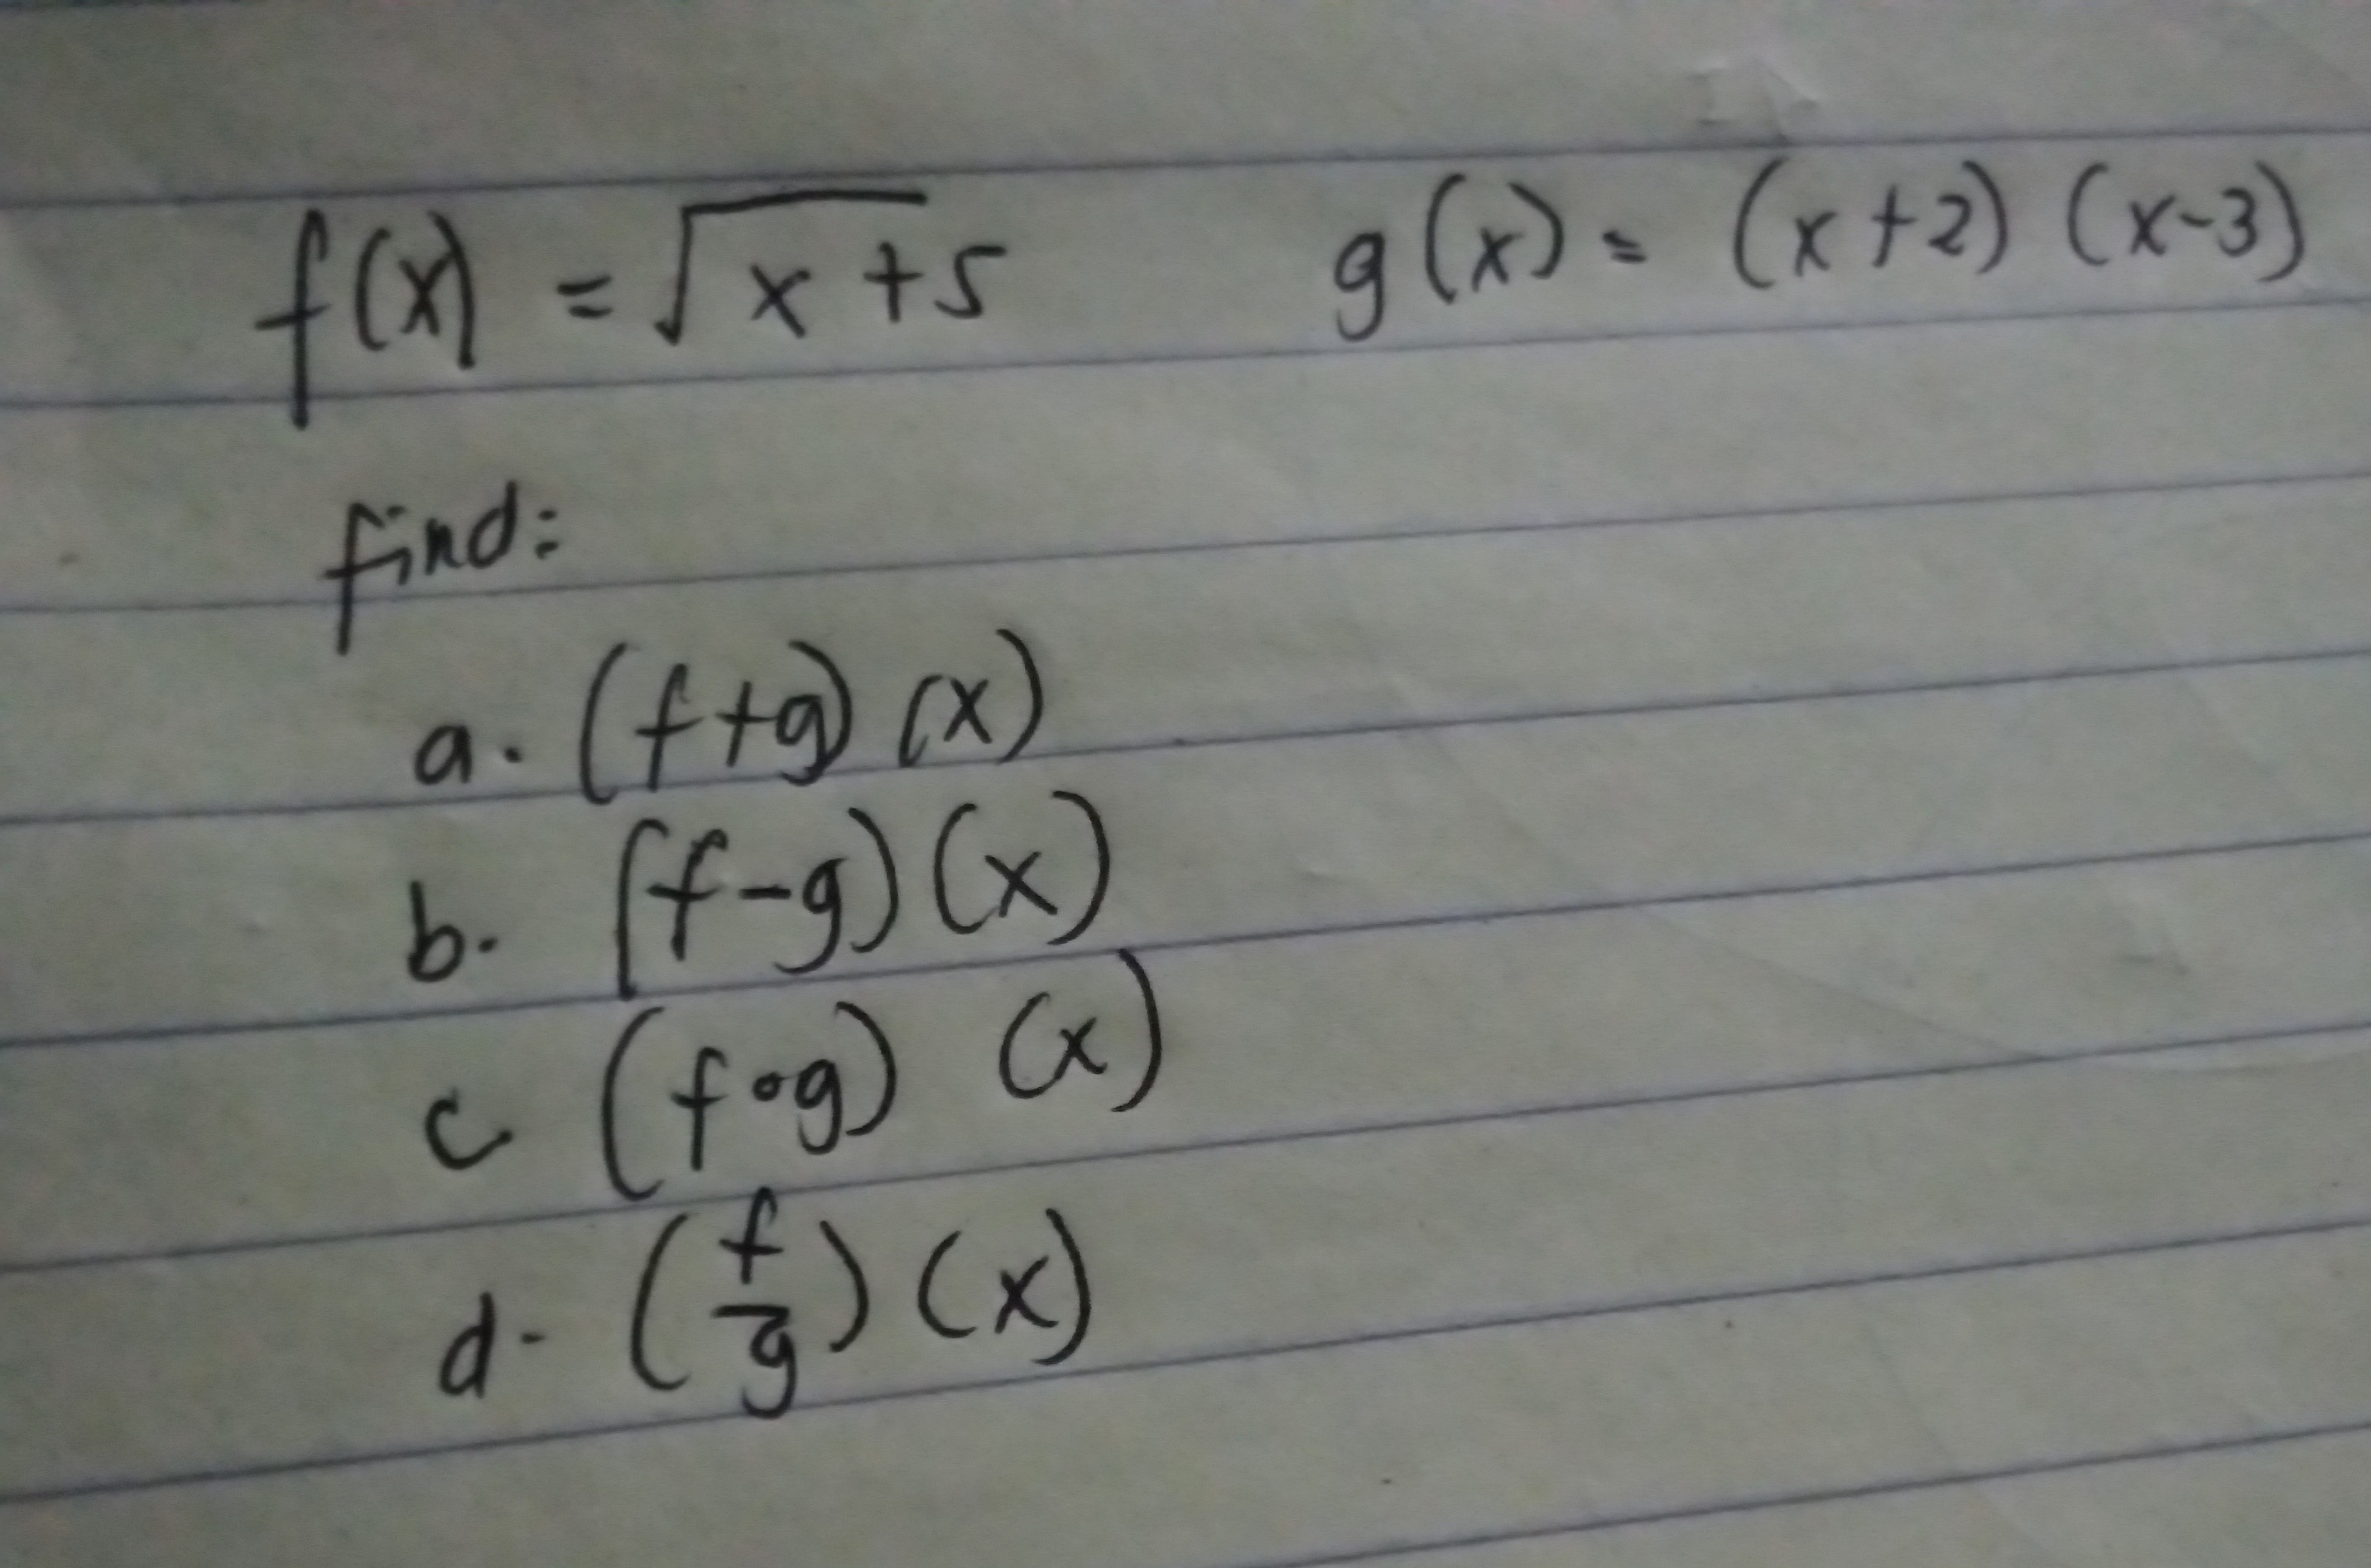 f(x) = √x+5 g(x) = (x+2) (x-3)
find:
a. (f+g) (x)
b. (f-g) (x)
c (f∘g) (x)
d- (f/g) (x)